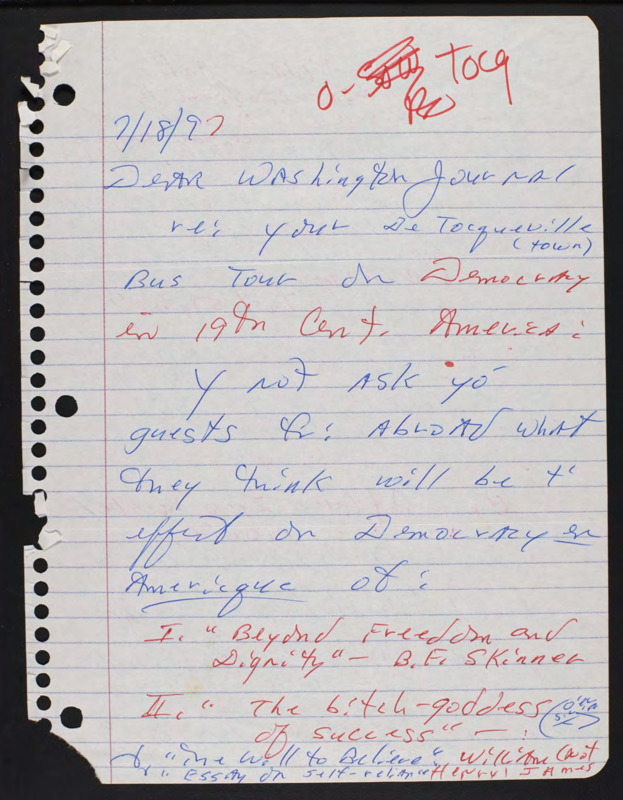 0- Tocq
7/18/97
Dear Washington Journal
re: your De Tocqueville
(town)
Bus Tour on Democracy
in 19th Cent. America:
Y not ask yo
guests fr: Abroad what
they think will be t'
effect on Democracy en
Amerique of:
I. "Beyond Freedom and
Dignity" - B.F. Skinner
II. "The bitch-goddess
of success" - :
"The Will to Believe", William (not
"Essay on self-reliance Henry) James